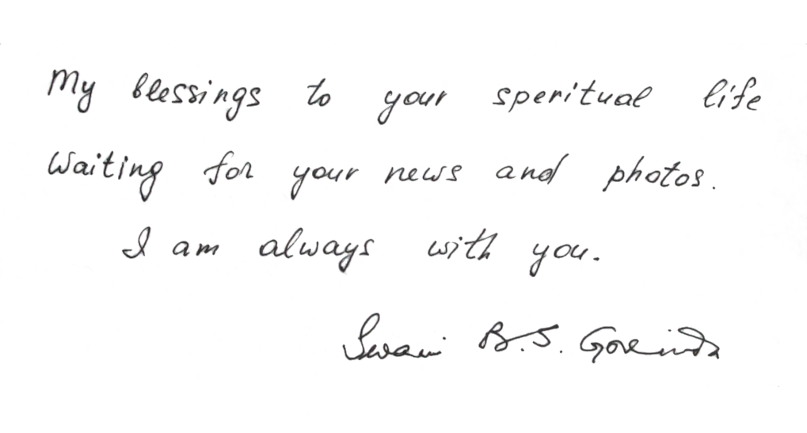 My blessings to your speritual life
Waiting for your news and photos.
I am always with you.
Swami B.S. Govinda